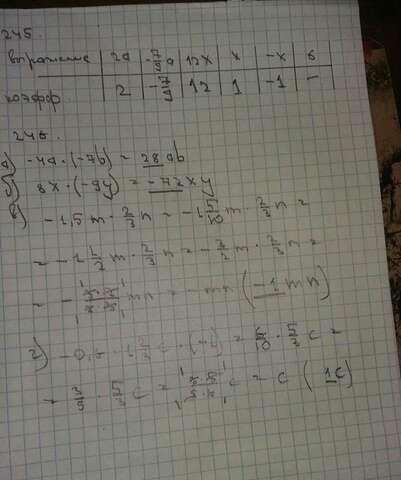 245.
выражение 2a -7/9 a 12x x -x 6
коэфф. 2 -7/9 12 1 -1 –
246.
а) -4a · (-7b) = 28ab
б) 8x · (-9y) = -72xy
в) -1,5m · 2/3 n = -1 5/10 m · 2/3 n =
= -1 1/2 m · 2/3 n = -3/2 m · 2/3 n =
mn = -mn (-1mn)
г) -0,6 · 1 2/3 c · = 6/10 · 5/3 c =
= 3/5 · 5/3 c = c = c (1c)